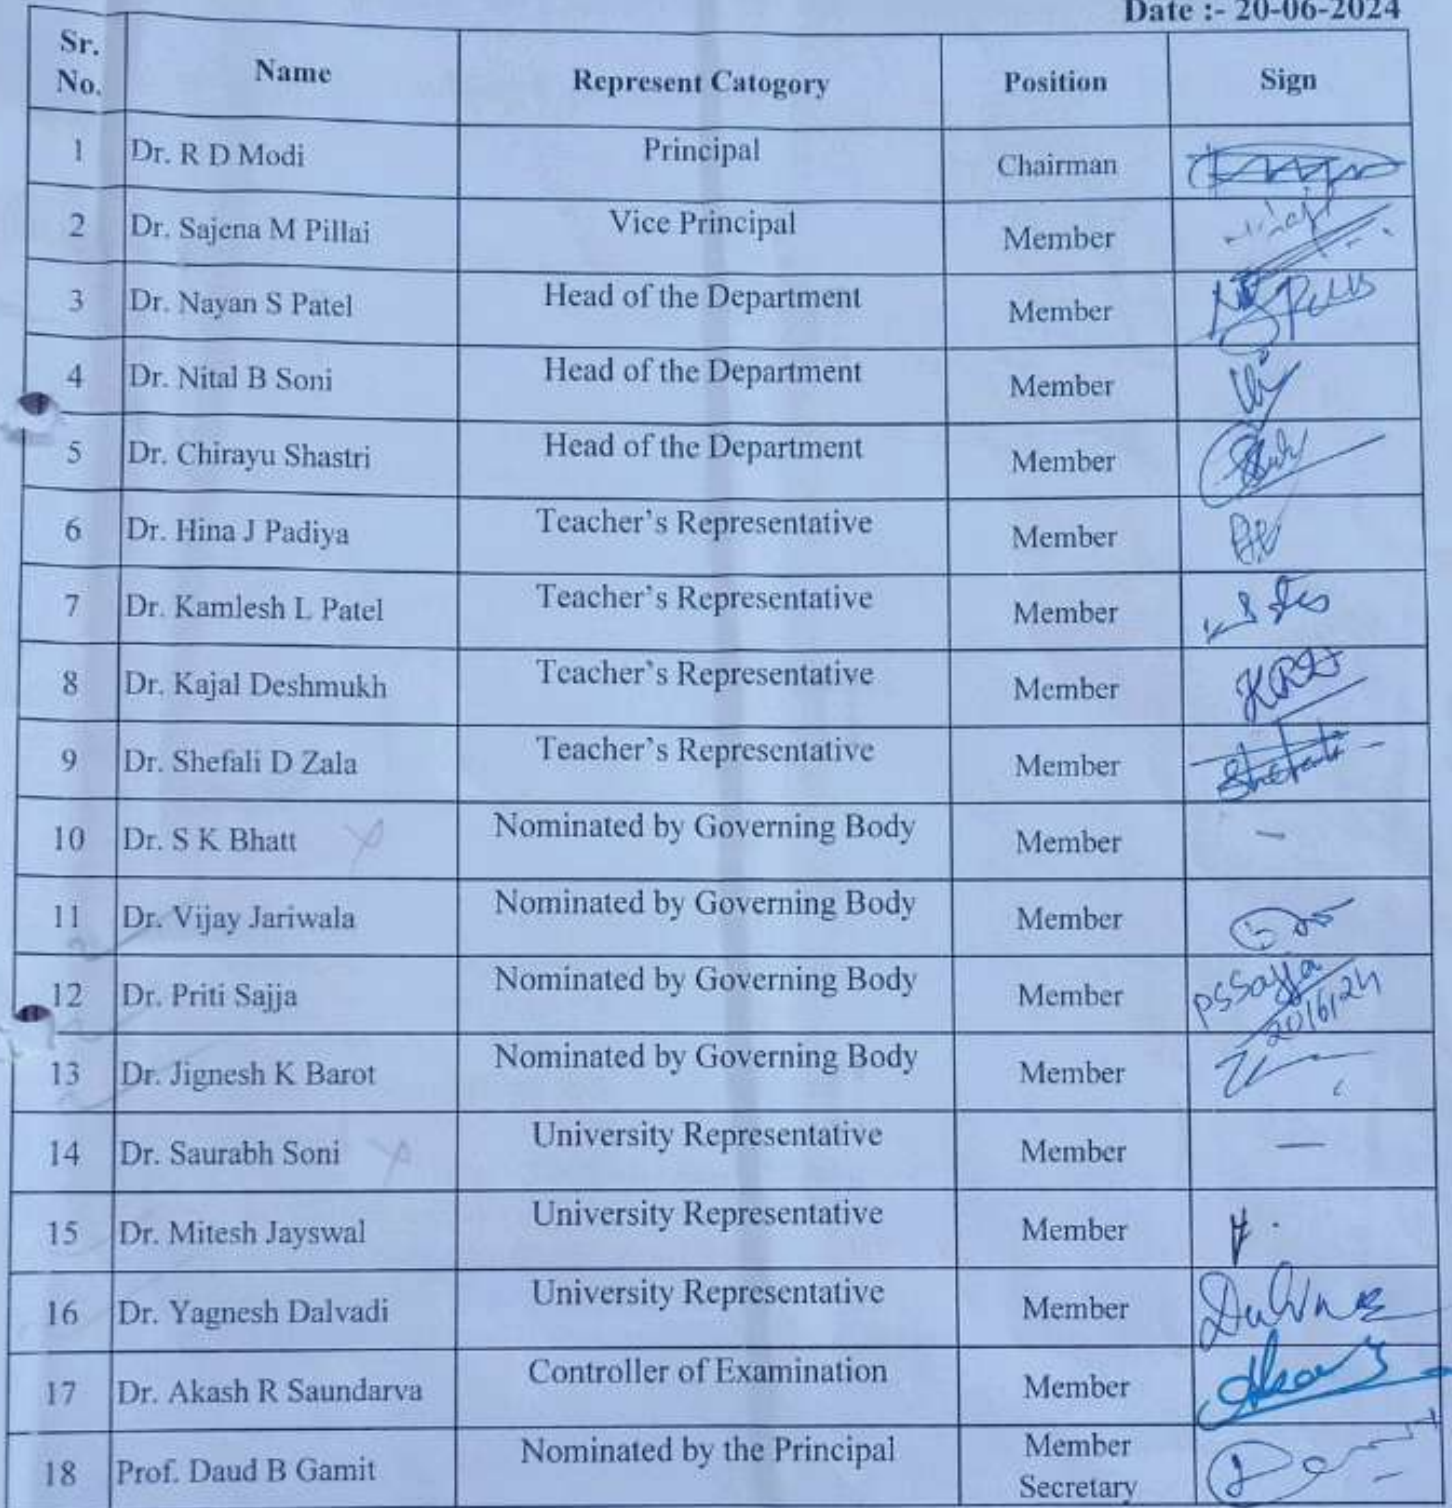 Date :- 20-06-2024
Sr. No. Name Represent Catogory Position Sign
1 Dr. R D Modi Principal Chairman
2 Dr. Sajena M Pillai Vice Principal Member
3 Dr. Nayan S Patel Head of the Department Member
4 Dr. Nital B Soni Head of the Department Member
5 Dr. Chirayu Shastri Head of the Department Member
6 Dr. Hina J Padiya Teacher's Representative Member
7 Dr. Kamlesh L Patel Teacher's Representative Member
8 Dr. Kajal Deshmukh Teacher's Representative Member
9 Dr. Shefali D Zala Teacher's Representative Member
10 Dr. S K Bhatt Nominated by Governing Body Member —
11 Dr. Vijay Jariwala Nominated by Governing Body Member
12 Dr. Priti Sajja Nominated by Governing Body Member PSSajja 20/6/24
13 Dr. Jignesh K Barot Nominated by Governing Body Member
14 Dr. Saurabh Soni University Representative Member —
15 Dr. Mitesh Jayswal University Representative Member
16 Dr. Yagnesh Dalvadi University Representative Member
17 Dr. Akash R Saundarva Controller of Examination Member
18 Prof. Daud B Gamit Nominated by the Principal Member Secretary